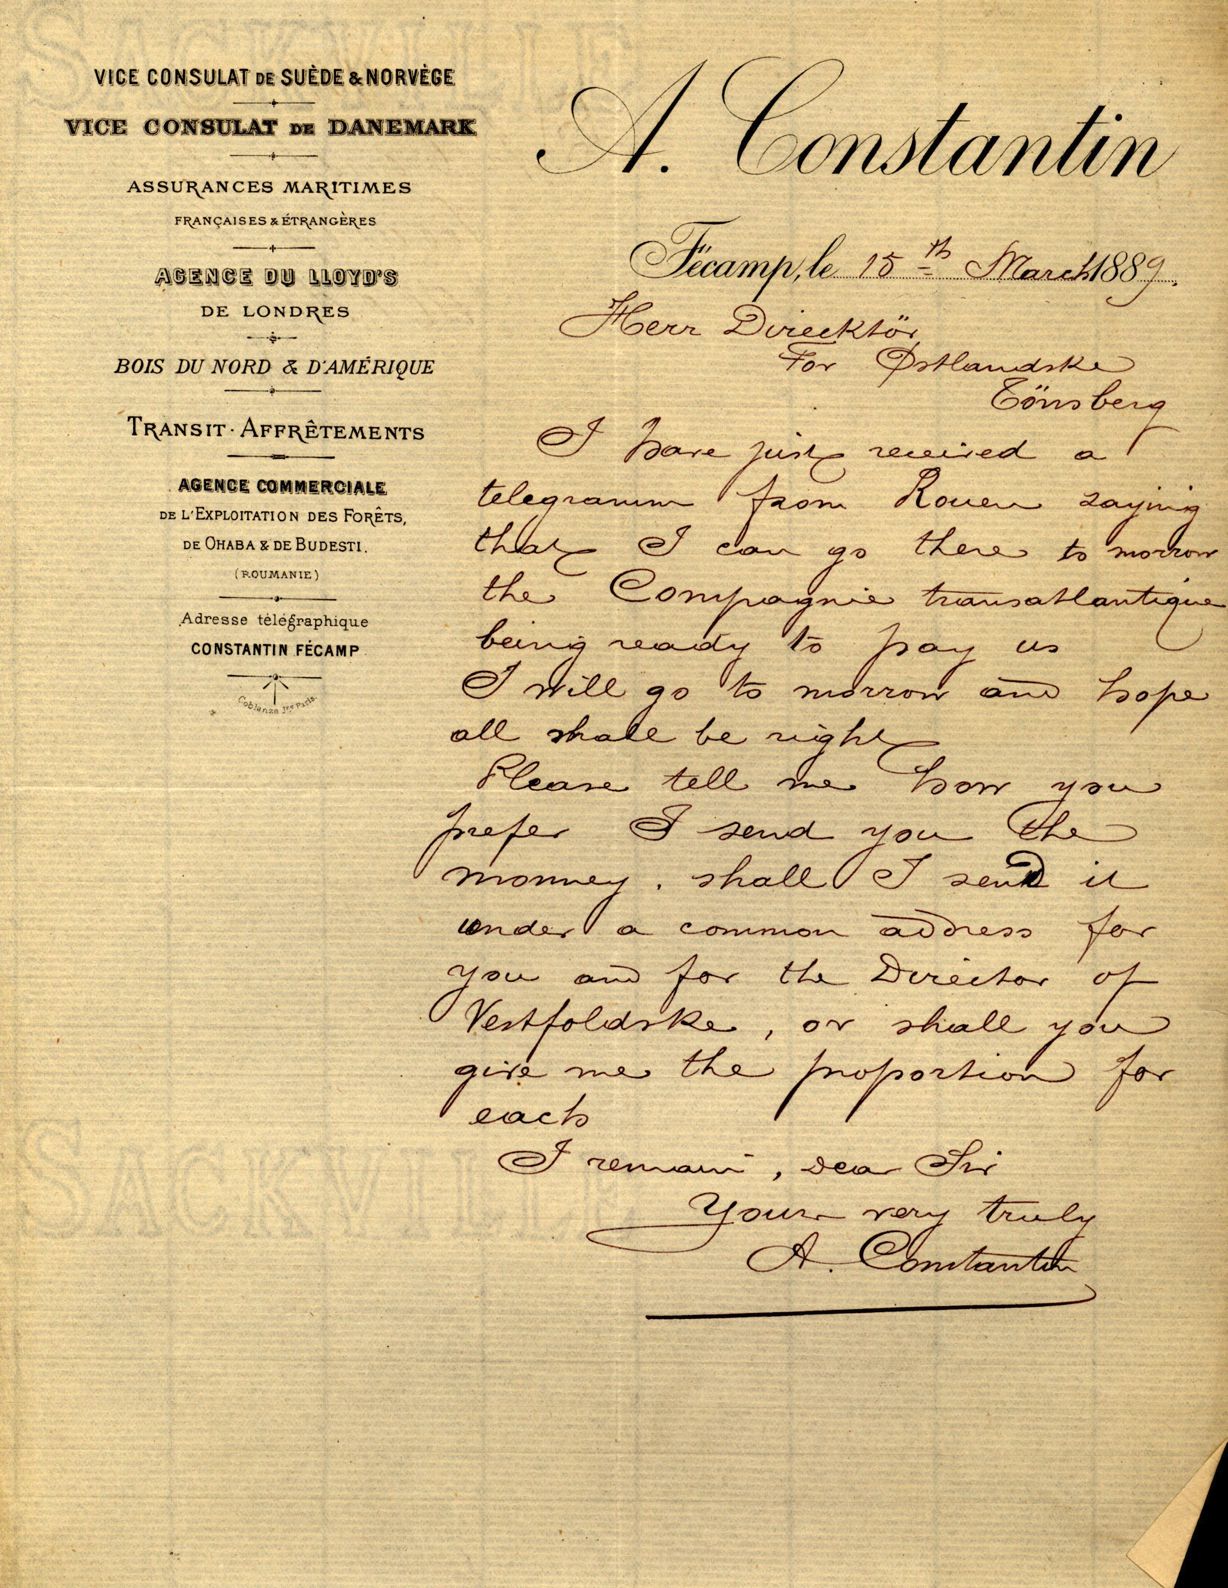 SACKVILLE
VICE CONSULAT DE SUÈDE & NORVÈGE
VICE CONSULAT DE DANEMARK
ASSURANCES MARITIMES
FRANÇAISES & ÉTRANGÈRES
AGENCE DU LLOYD'S
DE LONDRES
BOIS DU NORD & D'AMÉRIQUE
TRANSIT · AFFRÊTEMENTS
AGENCE COMMERCIALE
DE L'EXPLOITATION DES FORÊTS,
DE OHABA & DE BUDESTI.
(ROUMANIE)
Adresse télégraphique
CONSTANTIN FÉCAMP
Coblenza Jne Paris
A. Constantin
Fécamp, le 15th March 1889.
Herr Direcktör
For Østlandske
Tönsberg
I have just received a
telegramm from Rouen saying
that I can go there to morrow
the Compagnie transatlantique
being ready to pay us
I will go to morrow and hope
all shall be right
Please tell me how you
prefer I send you the
monney. shall I send it
under a common address for
you and for the Director of
Vestfoldske, or shall you
give me the proportion for
each
I remain, Dear Sir
Yours very truly
A. Constantin
SACKVILLE